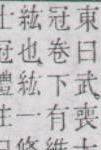 東曰武。喪
冠卷下有
紘也。紘一條
士冠禮注